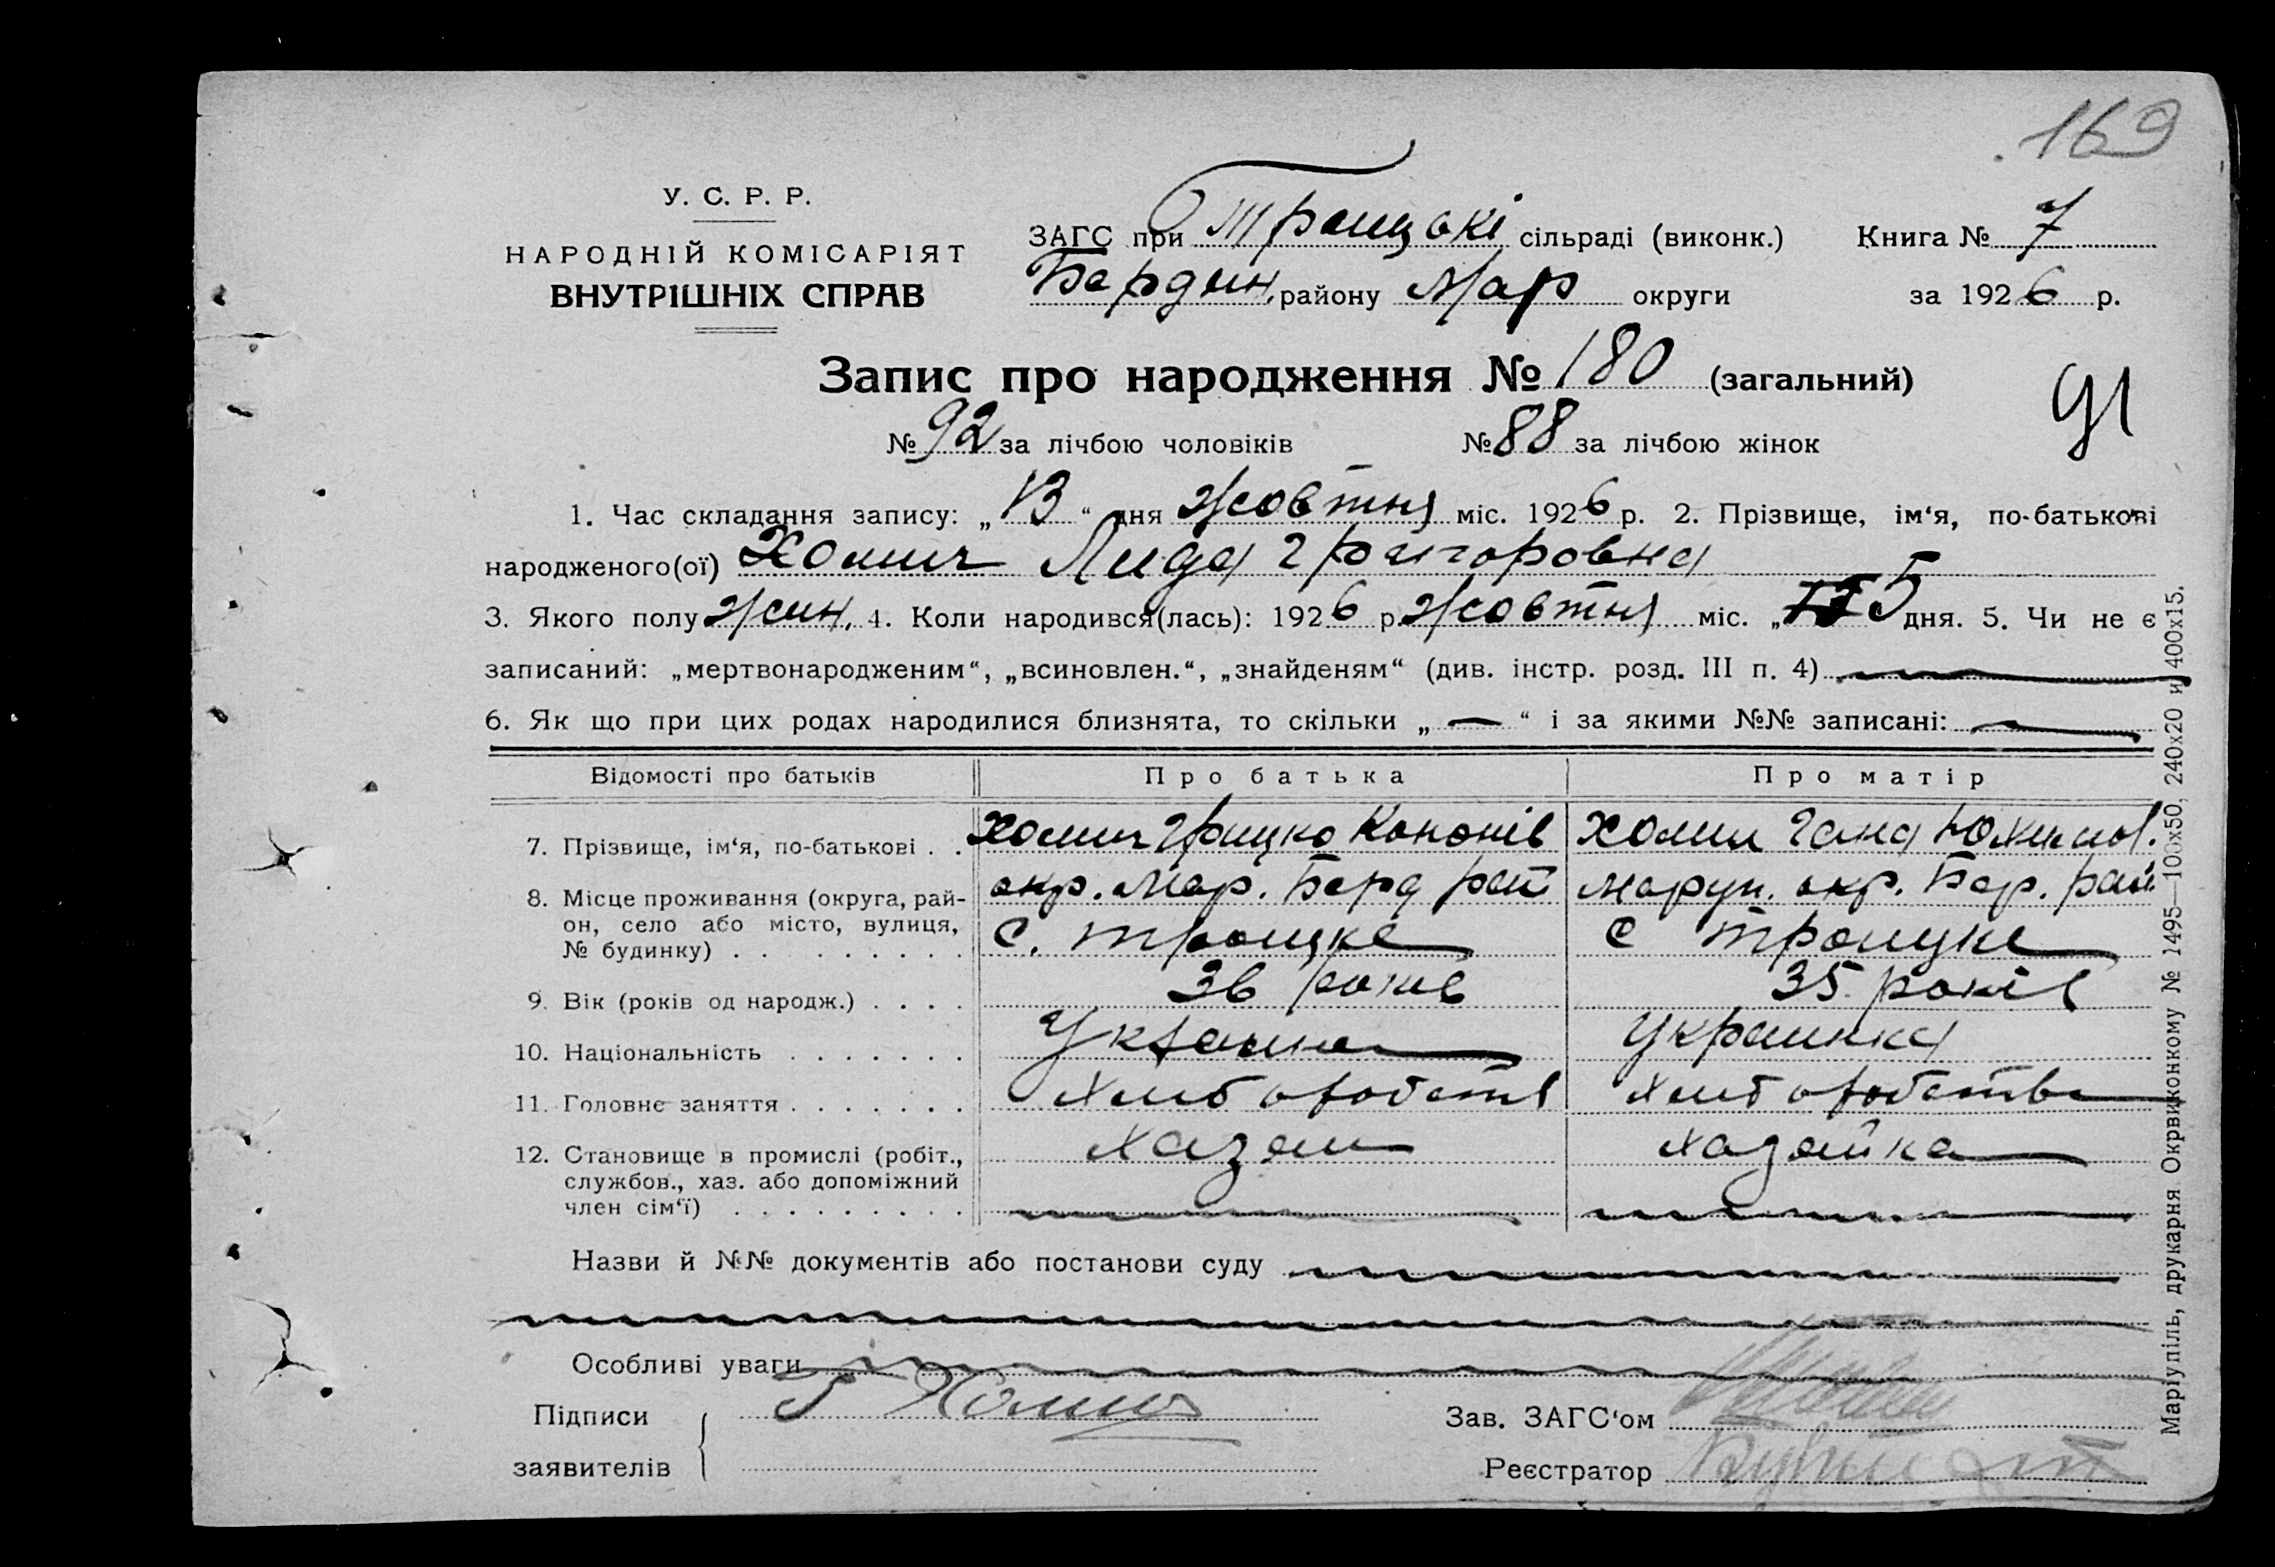 169
У. С. Р. Р.
НАРОДНІЙ КОМІСАРІЯТ
ВНУТРІШНІХ СПРАВ
ЗАГС при Троицькі сільраді (виконк.) Книга № 7
Бердян. району Мар округи за 1926 р.
Запис про народження № 180 (загальний)
91
№ 92 за лічбою чоловіків № 88 за лічбою жінок
1. Час складання запису: „13“ дня жовтня міс. 1926 р. 2. Прізвище, ім‘я, по-батькові
народженого(ої) Хомич Лида Григоровна
3. Якого полу жин. 4. Коли народився(лась): 1926 р. жовтня міс. „ 5 дня. 5. Чи не є
записаний: „мертвонародженим“, „всиновлен.“, „знайденям“ (див. інстр. розд. III п. 4)
6. Як що при цих родах народилися близнята, то скільки „ — “ і за якими №№ записані:
Відомості про батьків Про батька Про матір
7. Прізвище, ім‘я, по-батькові . . Хомич Грицко Кононів Хомич Гана Юхимов.
8. Місце проживання (округа, рай- окр. Мар. Берд рай Марун. окр. Бер. рай.
он, село або місто, вулиця, с. Троицке с Троицке
№ будинку) . . . . . . . . .
9. Вік (років од народж.) . . . . 36 років 35 років
10. Національність . . . . . . . Украинец Украинка
11. Головне заняття . . . . . . . Хлиборобств Хлиборобство
12. Становище в промислі (робіт., Хазаин Хазяйка
службов., хаз. або допоміжний
член сім‘ї) . . . . . . . . .
Назви й №№ документів або постанови суду
Особливі уваги
Підписи Г Хомич Зав. ЗАГС‘ом
заявителів Реєстратор
Маріупіль, друкарня Окрвиконкому № 1495—100х50, 240х20 и 400х15.